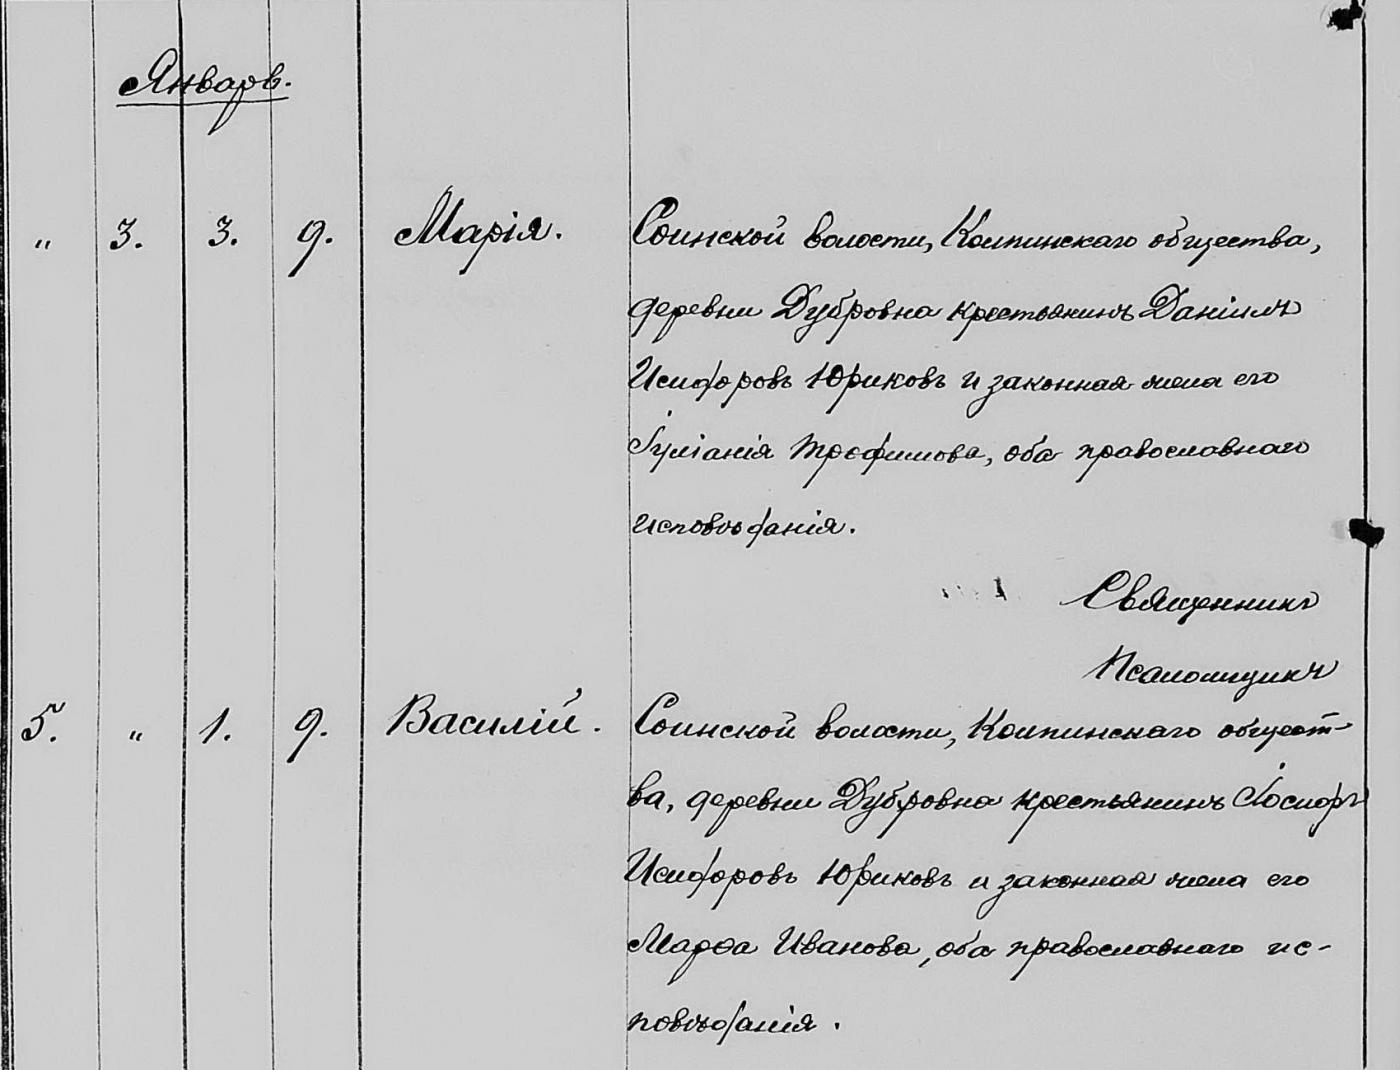 Январь.
„ 3. 3. 9. Марія. Соинской волости, Колпинскаго общества,
деревни Дубровна крестьянинъ Даніилъ
Исидоровъ Юриковъ и законная жена его
Іуліанія Трофимова, оба православнаго
исповѣданія.
Священникъ
Псаломщикъ
5. „ 1. 9. Василій. Соинской волости, Колпинскаго общест-
ва, деревни Дубровна крестьянинъ Іосифъ
Исидоровъ Юриковъ и законная жена его
Марѳа Иванова, оба православнаго ис-
повѣданія.